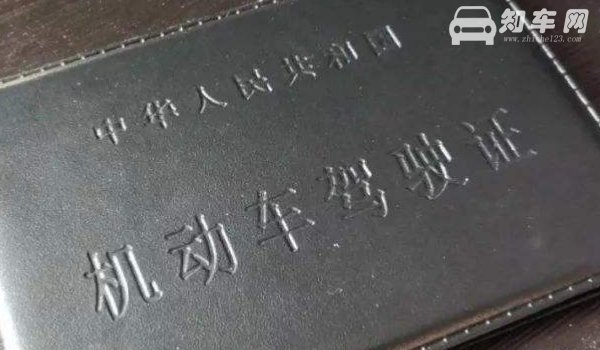 知车网
www.zhiche123.com
中华人民共和国
机动车驾驶证